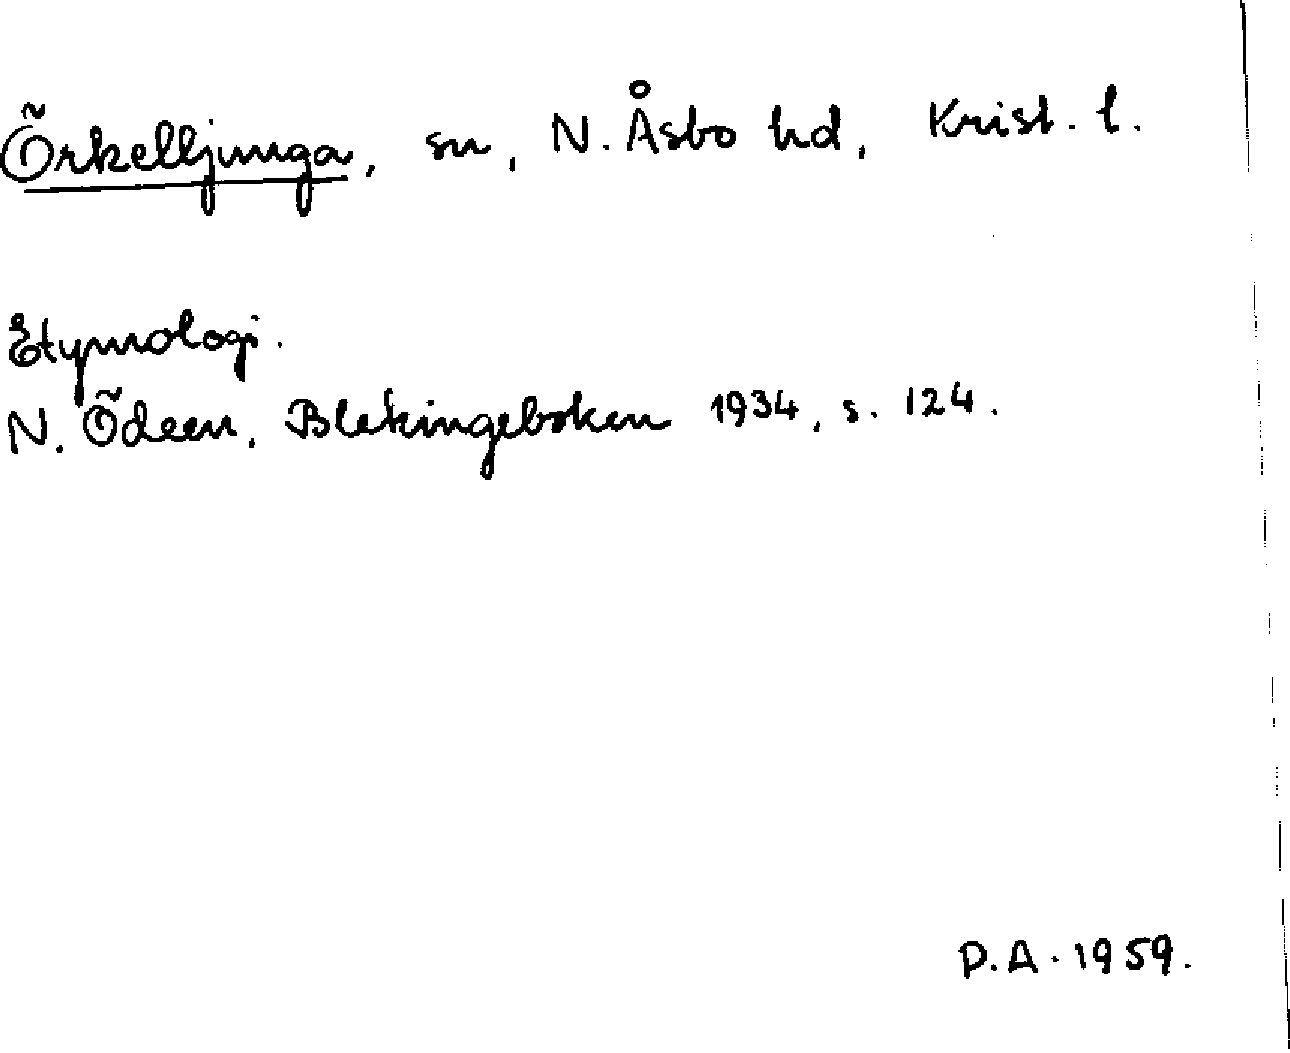 Örkelljunga, sn, N. Åsbo hd, Krist. l.
Etymologi.
N. Ödeen, Blekingeboken 1934, s. 124.
D.A. 1959.